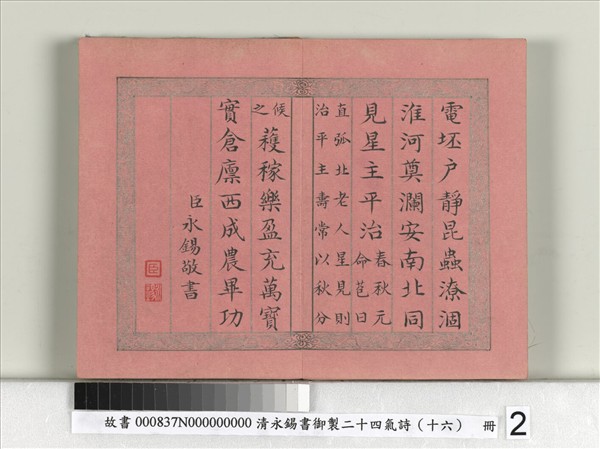 電坯户靜昆蟲潦涸
淮河奠瀾安南北同
見星主平治春秋元
命苞曰
直弧北老人星見則
治平主壽常以秋分
候
之
穫稼樂盈充萬寶
實倉廩西成農畢功
臣永錫敬書
臣
故書 000837N000000000 清永錫書御製二十四氣詩（十六） 冊 2